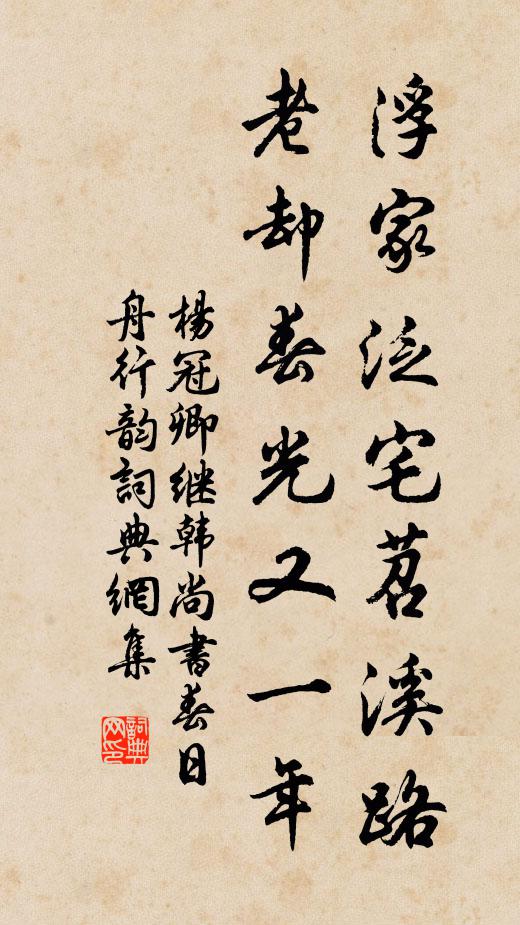 浮家泛宅苕溪路
老却春光又一年
楊冠卿继韩尚書春日
舟行韵詞典網集
詞典网印